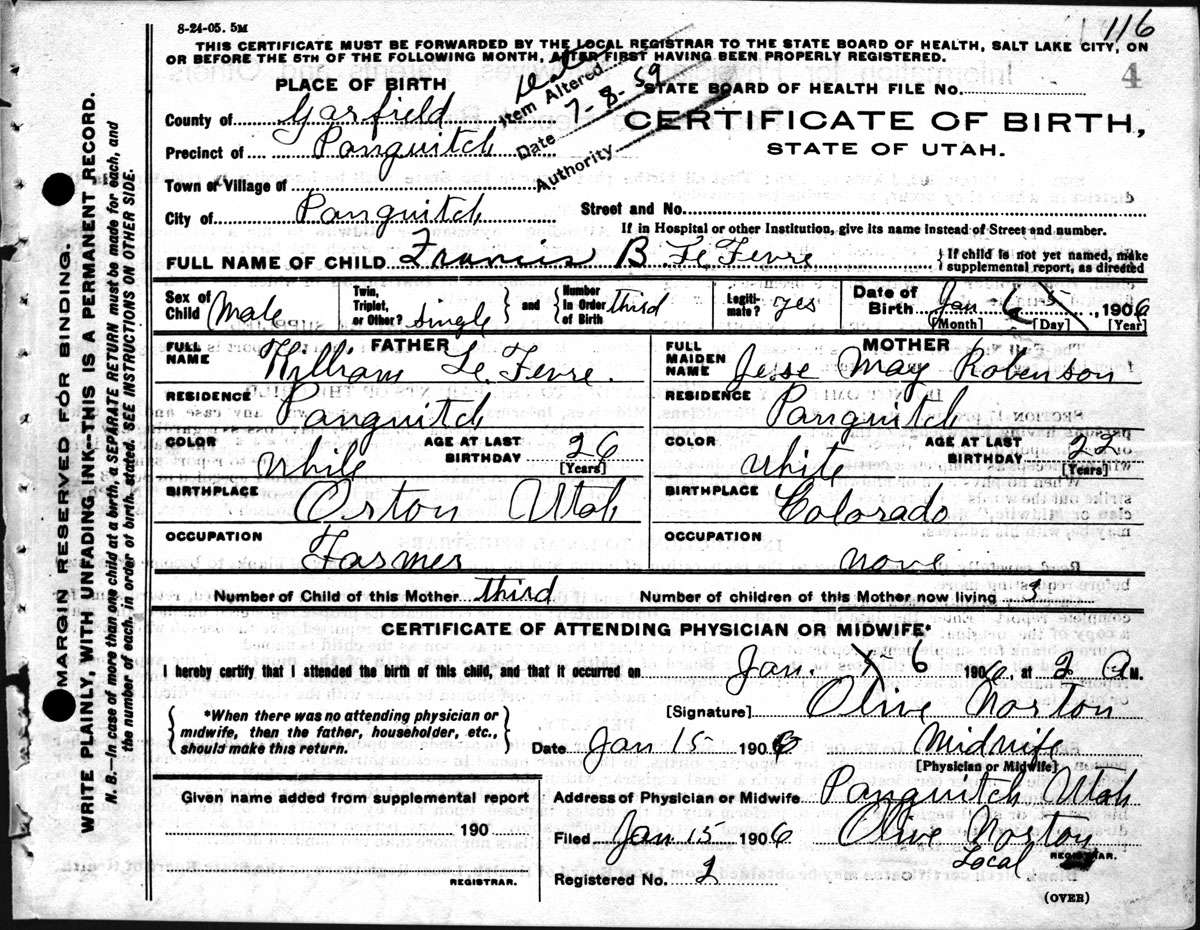 8-24-05. 5M
116
THIS CERTIFICATE MUST BE FORWARDED BY THE LOCAL REGISTRAR TO THE STATE BOARD OF HEALTH, SALT LAKE CITY, ON
OR BEFORE THE 5TH OF THE FOLLOWING MONTH, AFTER FIRST HAVING BEEN PROPERLY REGISTERED.
4
PLACE OF BIRTH
STATE BOARD OF HEALTH FILE No.
Item Altered Date
Date 7-8-59
Authority
County of Garfield
CERTIFICATE OF BIRTH,
Precinct of Panguitch
STATE OF UTAH.
Town or Village of
City of Panguitch
Street and No.
If in Hospital or other Institution, give its name instead of Street and number.
FULL NAME OF CHILD Francis B Le Fevre
If child is not yet named, make
supplemental report, as directed
Sex of Child Male
Twin, Triplet, or Other? Single and Number In Order of Birth third
Legiti-mate? yes
Date of Birth Jan 6 5, 1906
[Month] [Day] [Year]
FATHER
FULL NAME William Le Fevre.
MOTHER
FULL MAIDEN NAME Jesse May Robenson
RESIDENCE Panguitch
RESIDENCE Panguitch
COLOR White
AGE AT LAST BIRTHDAY 26
[Years]
COLOR White
AGE AT LAST BIRTHDAY 22
[Years]
BIRTHPLACE Orton Utah
BIRTHPLACE Colorado
OCCUPATION Farmer
OCCUPATION none
Number of Child of this Mother third
Number of children of this Mother now living 3
CERTIFICATE OF ATTENDING PHYSICIAN OR MIDWIFE*
I hereby certify that I attended the birth of this child, and that it occurred on Jan. 6 1906, at 2 A M.
[Signature] Olive Norton
*When there was no attending physician or
midwife, then the father, householder, etc.,
should make this return.
Date Jan 15 1906
Midwife
[Physician or Midwife]
Given name added from supplemental report
190
REGISTRAR.
Address of Physician or Midwife Panguitch Utah
Filed Jan 15 1906 Olive Norton
Local REGISTRAR.
Registered No. 2
(OVER)
MARGIN RESERVED FOR BINDING.
WRITE PLAINLY, WITH UNFADING INK--THIS IS A PERMANENT RECORD.
N. B.—In case of more than one child at a birth, a SEPARATE RETURN must be made for each, and
the number of each, in order of birth, stated. SEE INSTRUCTIONS ON OTHER SIDE.